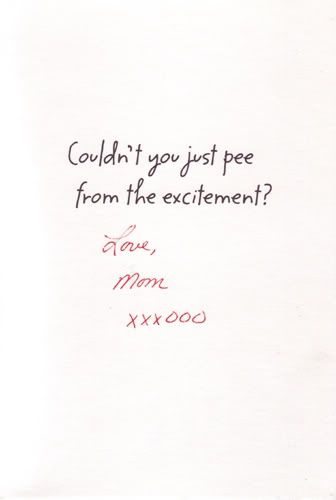 Couldn't you just pee
from the excitement?
Love,
Mom
xxxooo